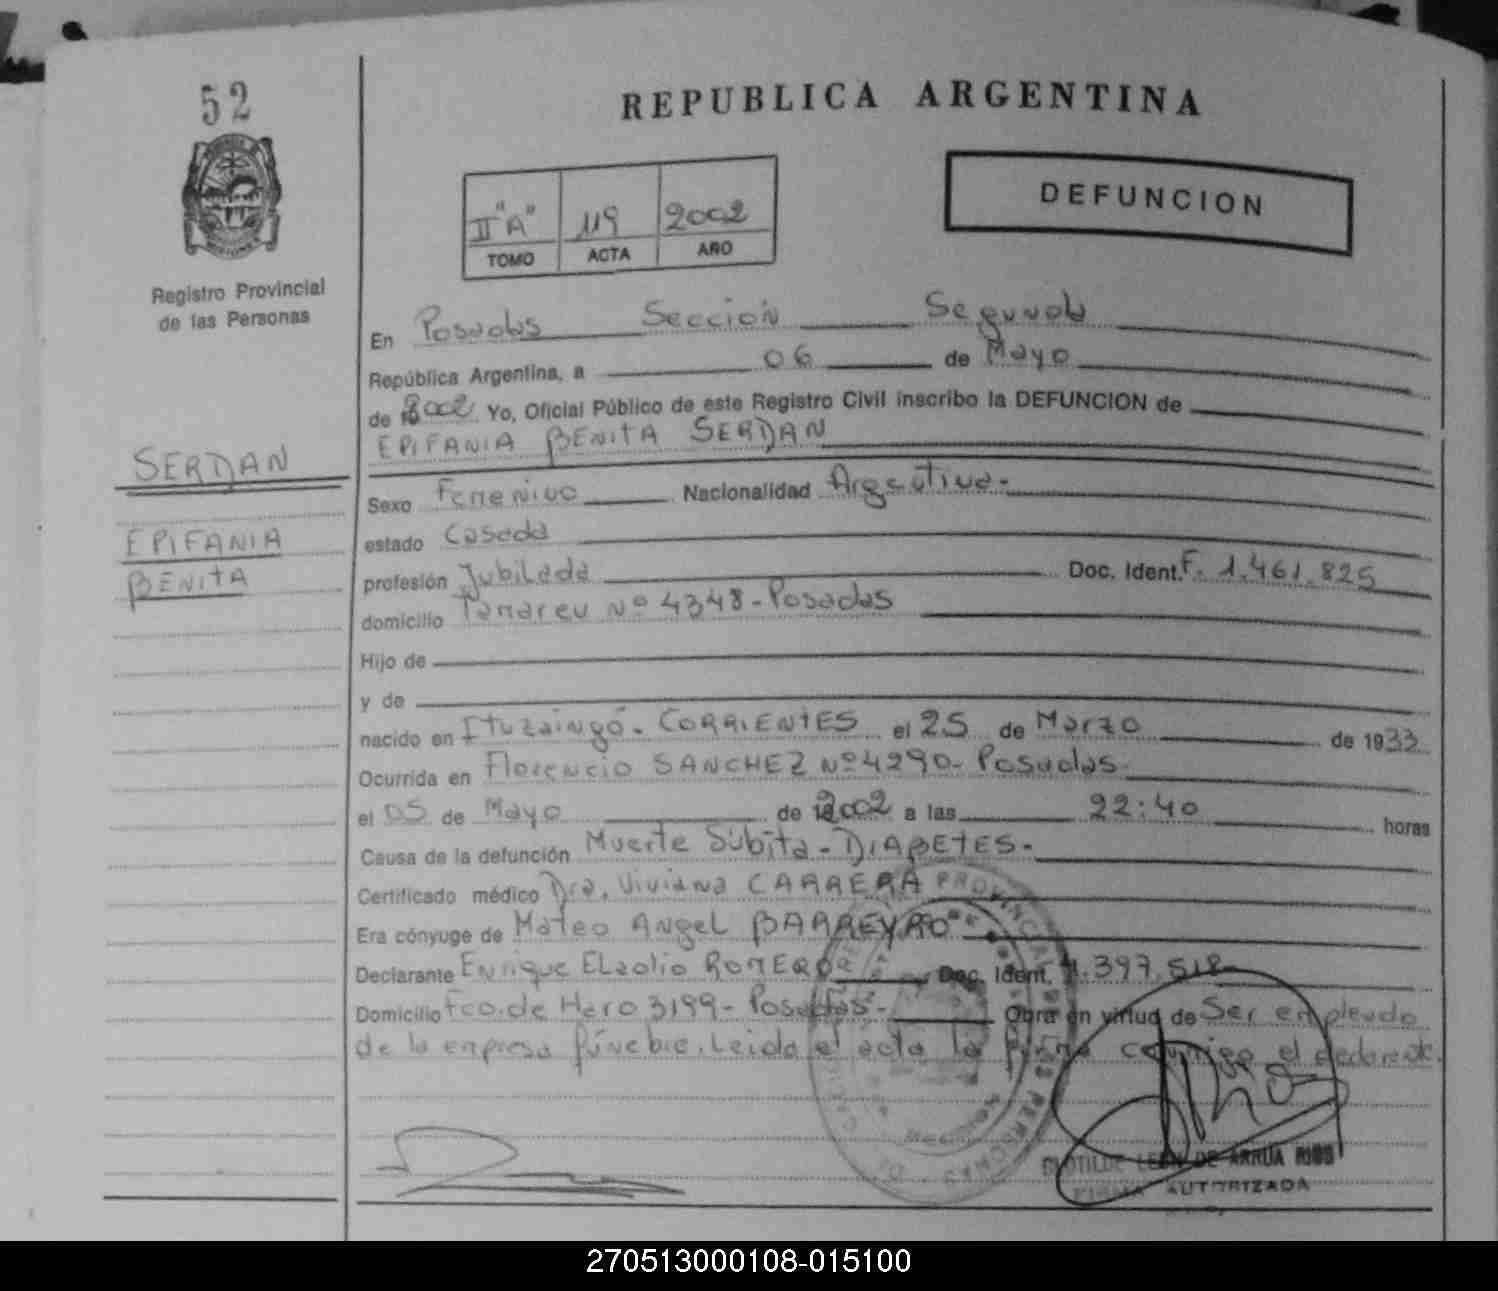 52
REPUBLICA ARGENTINA
DEFUNCION
II "A" 119 2002
TOMO ACTA AÑO
Registro Provincial
de las Personas
En Posadas Sección Segunda
República Argentina, a 06 de Mayo
de 2002 Yo, Oficial Público de este Registro Civil inscribo la DEFUNCION de
EPIFANIA BENITA SERDAN
SERDAN
EPIFANIA
BENITA
Sexo Femenino Nacionalidad Argentina-
estado Casada
profesión Jubilada Doc. Ident. F. 1.461.825
domicilio Nº 4348-Posadas
Hijo de
y de
nacido en Ituzaingó- CORRIENTES el 25 de Marzo de 1933
Ocurrida en Florencio SANCHEZ Nº4290- Posadas-
el 05 de Mayo de 2002 a las 22:40 horas
Causa de la defunción Muerte Súbita-DIABETES-
Certificado médico Dra. Viviana CARRERA
Era cónyuge de Mateo Angel BARREYRO-
Declarante Enrique Eladio ROMERO Doc. Ident. .397.518-
Domicilio Fco. de Haro 3199- Posadas- Obra en virtud de Ser empleado
de la empresa fúnebre. Leida el acta la firma conmigo el declarante.
CLOTILDE LEON DE ARRUA RIOS
FIRMA AUTORIZADA
270513000108-015100